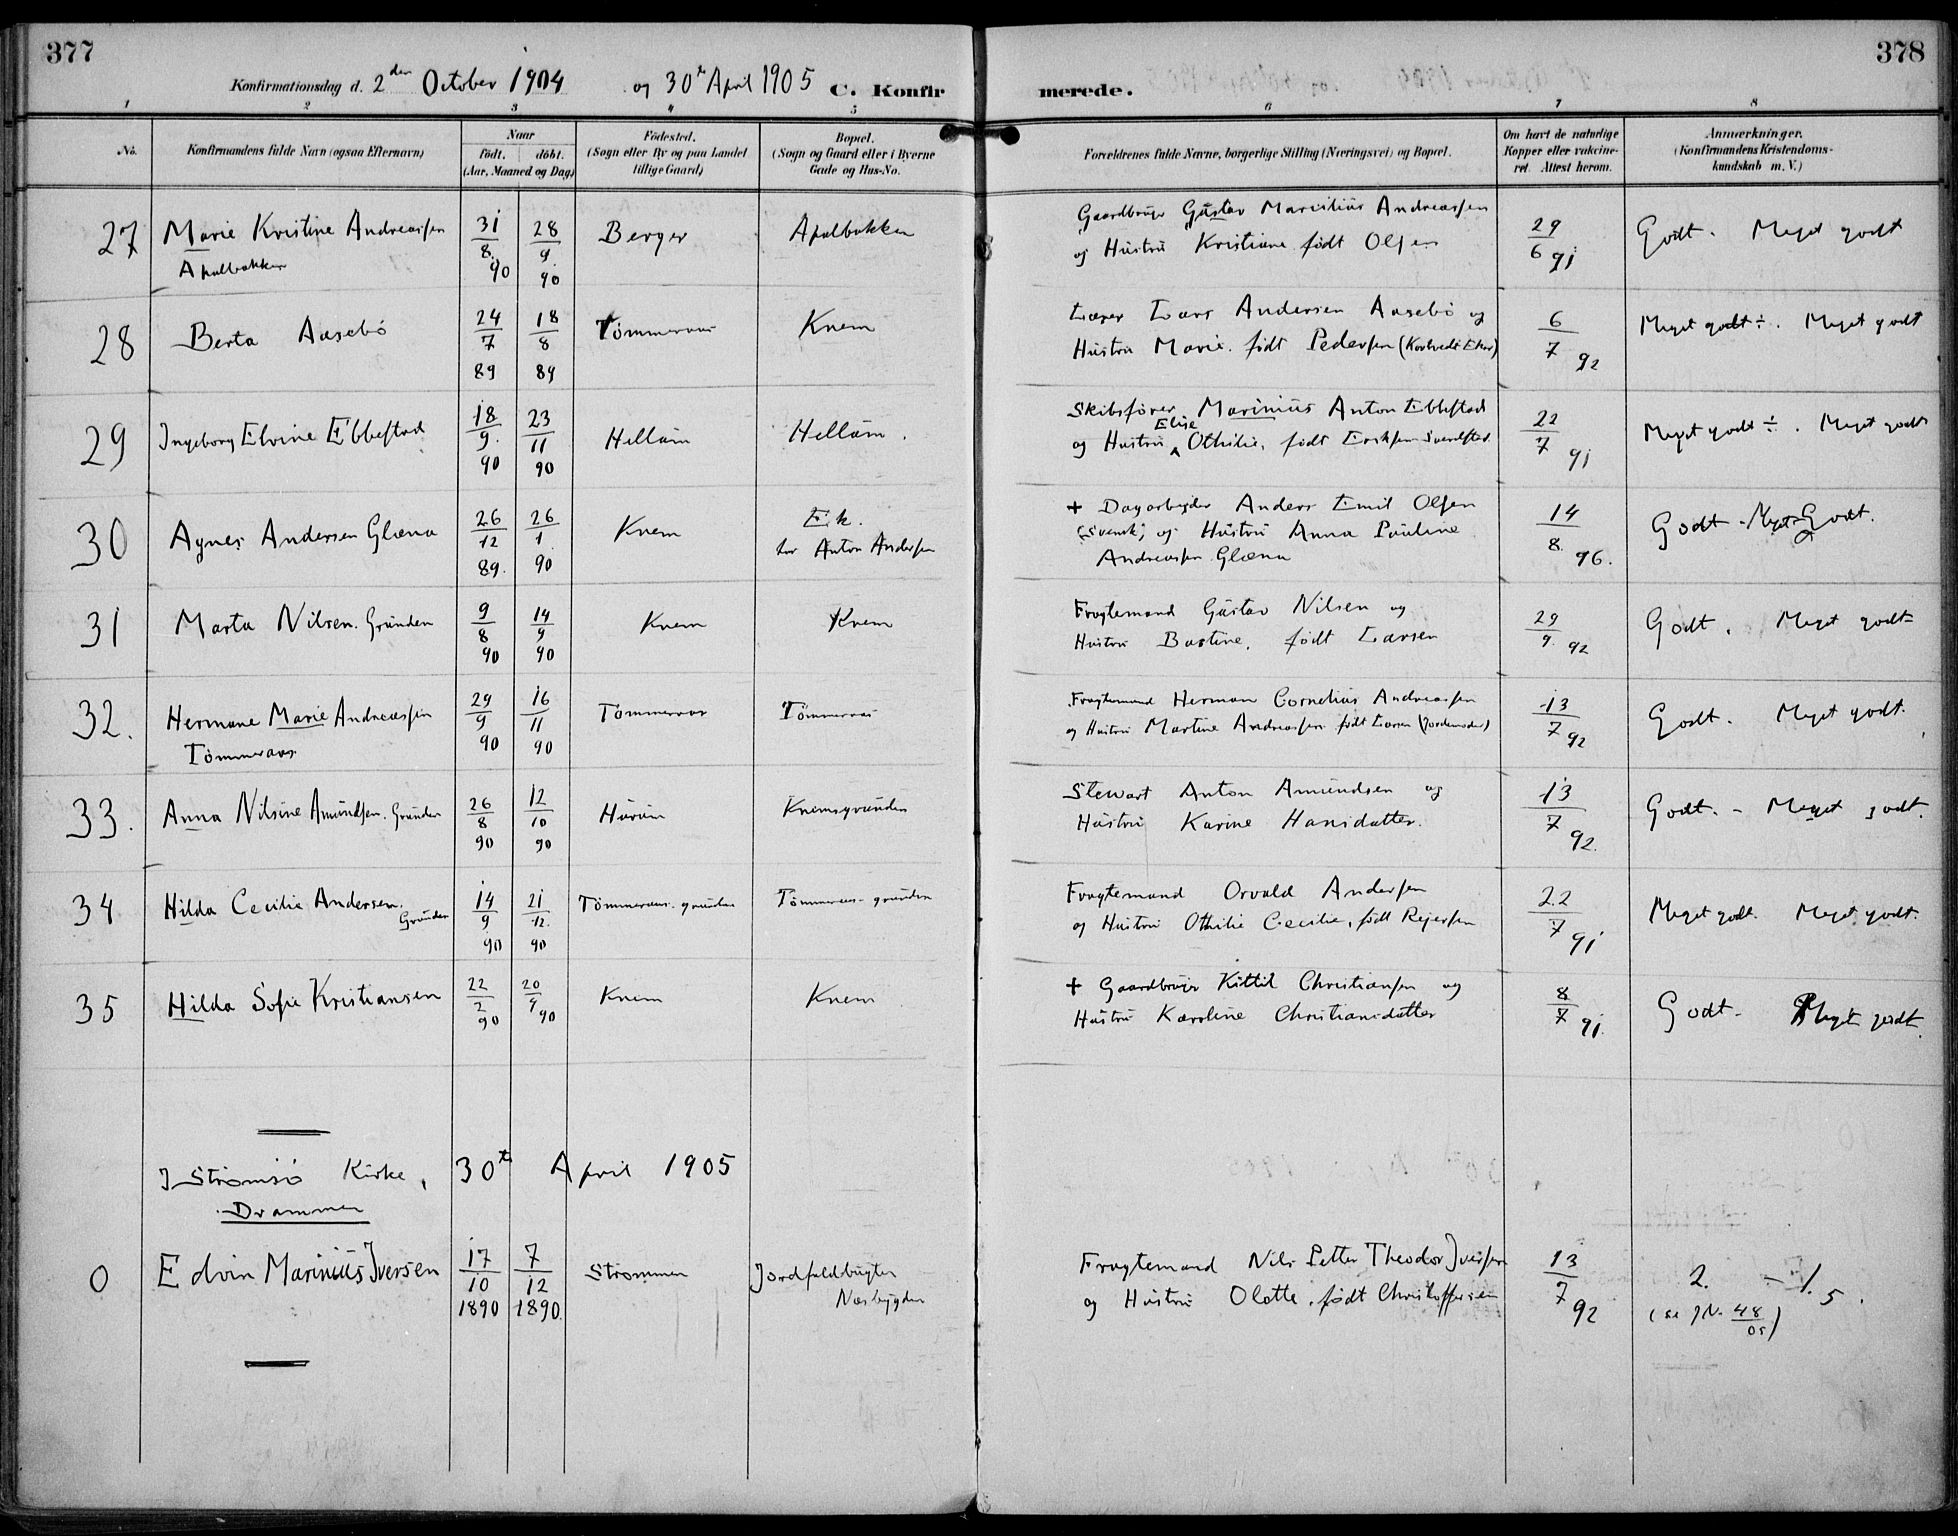 377
378
Konfirmationsdag d. 2den October 1904 og 30te April 1905 C. Konfirmerede.
1 2 3 4 5 6 7 8
No.
Konfirmandens fulde Navn (ogsaa Efternavn)
Naar
født. døbt.
(Aar, Maaned og Dag)
Fødested.
(Sogn eller By og paa Landet
tillige Gaard)
Bopæl.
(Sogn og Gaard eller i Byerne
Gade og Hus-No.
Forældrenes fulde Navne, borgerlige Stilling (Næringsvei) og Bopæl.
Om havt de naturlige
Kopper eller vakcine-
ret. Attest herom.
Anmærkninger.
(Konfirmandens Kristendoms-
kundskab m. V.)
27 Marie Kristine Andreassen 31/8 90 28/9 90 Berger Apalbakken Gaardbruger Gustav Marcilius Andreassen 29/6 91 Godt. Meget godt
Apalbakken og Hustru Kristiane født Olsen
28 Berta Aasebö 24/7 89 18/8 89 Tömmeraas Knem Lars Andersen Aasebö og 6/7 92 Meget godt ÷. Meget godt
Hustru Marie. født Pedersen
29 Ingeborg Elvine Ebbestad 18/9 90 23/11 90 Hellum Hellum. Skibsfører Marinius Anton Ebbestad 22/7 91 Meget godt ÷. Meget godt
og Hustru Elise Othilie, født
30 Agnes Andersen Glæna 26/12 89. 26/1 90 Knem Ek. + Dagarbeider Anders Emil Olsen 14/8 96. Godt - Meget Godt.
hos Anton Andersen (svensk) og Hustru Anna Pauline
Andreassen Glæna
31 Marta Nilsen. Grunden 9/8 90 14/9 90 Knem Knem Fragtemand Gustav Nilsen og 29/9 92 Godt. Meget godt
Hustru Bastine, født Larsen
32. Hermane Marie Andreassen 29/9 90 16/11 90 Tömmeraas Tömmeraas Fragtemand Herman Cornelius Andreassen 13/7 92 Godt. Meget godt.
Tömmeraas og Hustru Martine Andreassen født Larsen (Jordemoder)
33. Anna Nilsine Amundsen. Grunden 26/8 90 12/10 90 Hurum Knemsgrunden Stewart Anton Amundsen og 13/7 92. Godt. - Meget godt.
Hustru Karine Hansdatter.
34 Hilda Cecilie Andersen. 14/9 90 21/12 90 Tömmeraas-grunden Tömmeraas-grunden Fragtemand Osvald Andersen 22/7 91 Meget godt. Meget godt.
Grunden og Hustru Othilie Cecilie, født Rejersen
35 Hilda Sofie Kristiansen 22/2 90 20/4 90 Knem Knem + Gaardbruger Kittil Christiansen og 8/7 91. Godt - Meget godt.
Hustru Karoline Christiansdatter
I Strømsö Kirke, 30te April 1905
Drammen
0 Edvin Marinius Iversen 17/10 1890 7/12 1890. Strømmen Jordfaldbugten Fragtemand Nils Petter Theodor Iversen 13/7 92 2. - 1.5.
Næsbygden og Hustru Olette, født Christoffersen (se JN. 48/05)